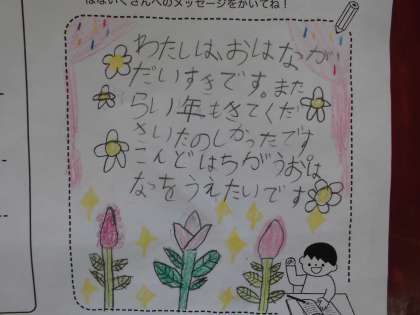 はないくさんへのメッセージをかいてね!
わたしは、おはなが
だいすきです。また
らい年もきてくだ
さいたのしかったです
こんどはちがうおは
なをうえたいです